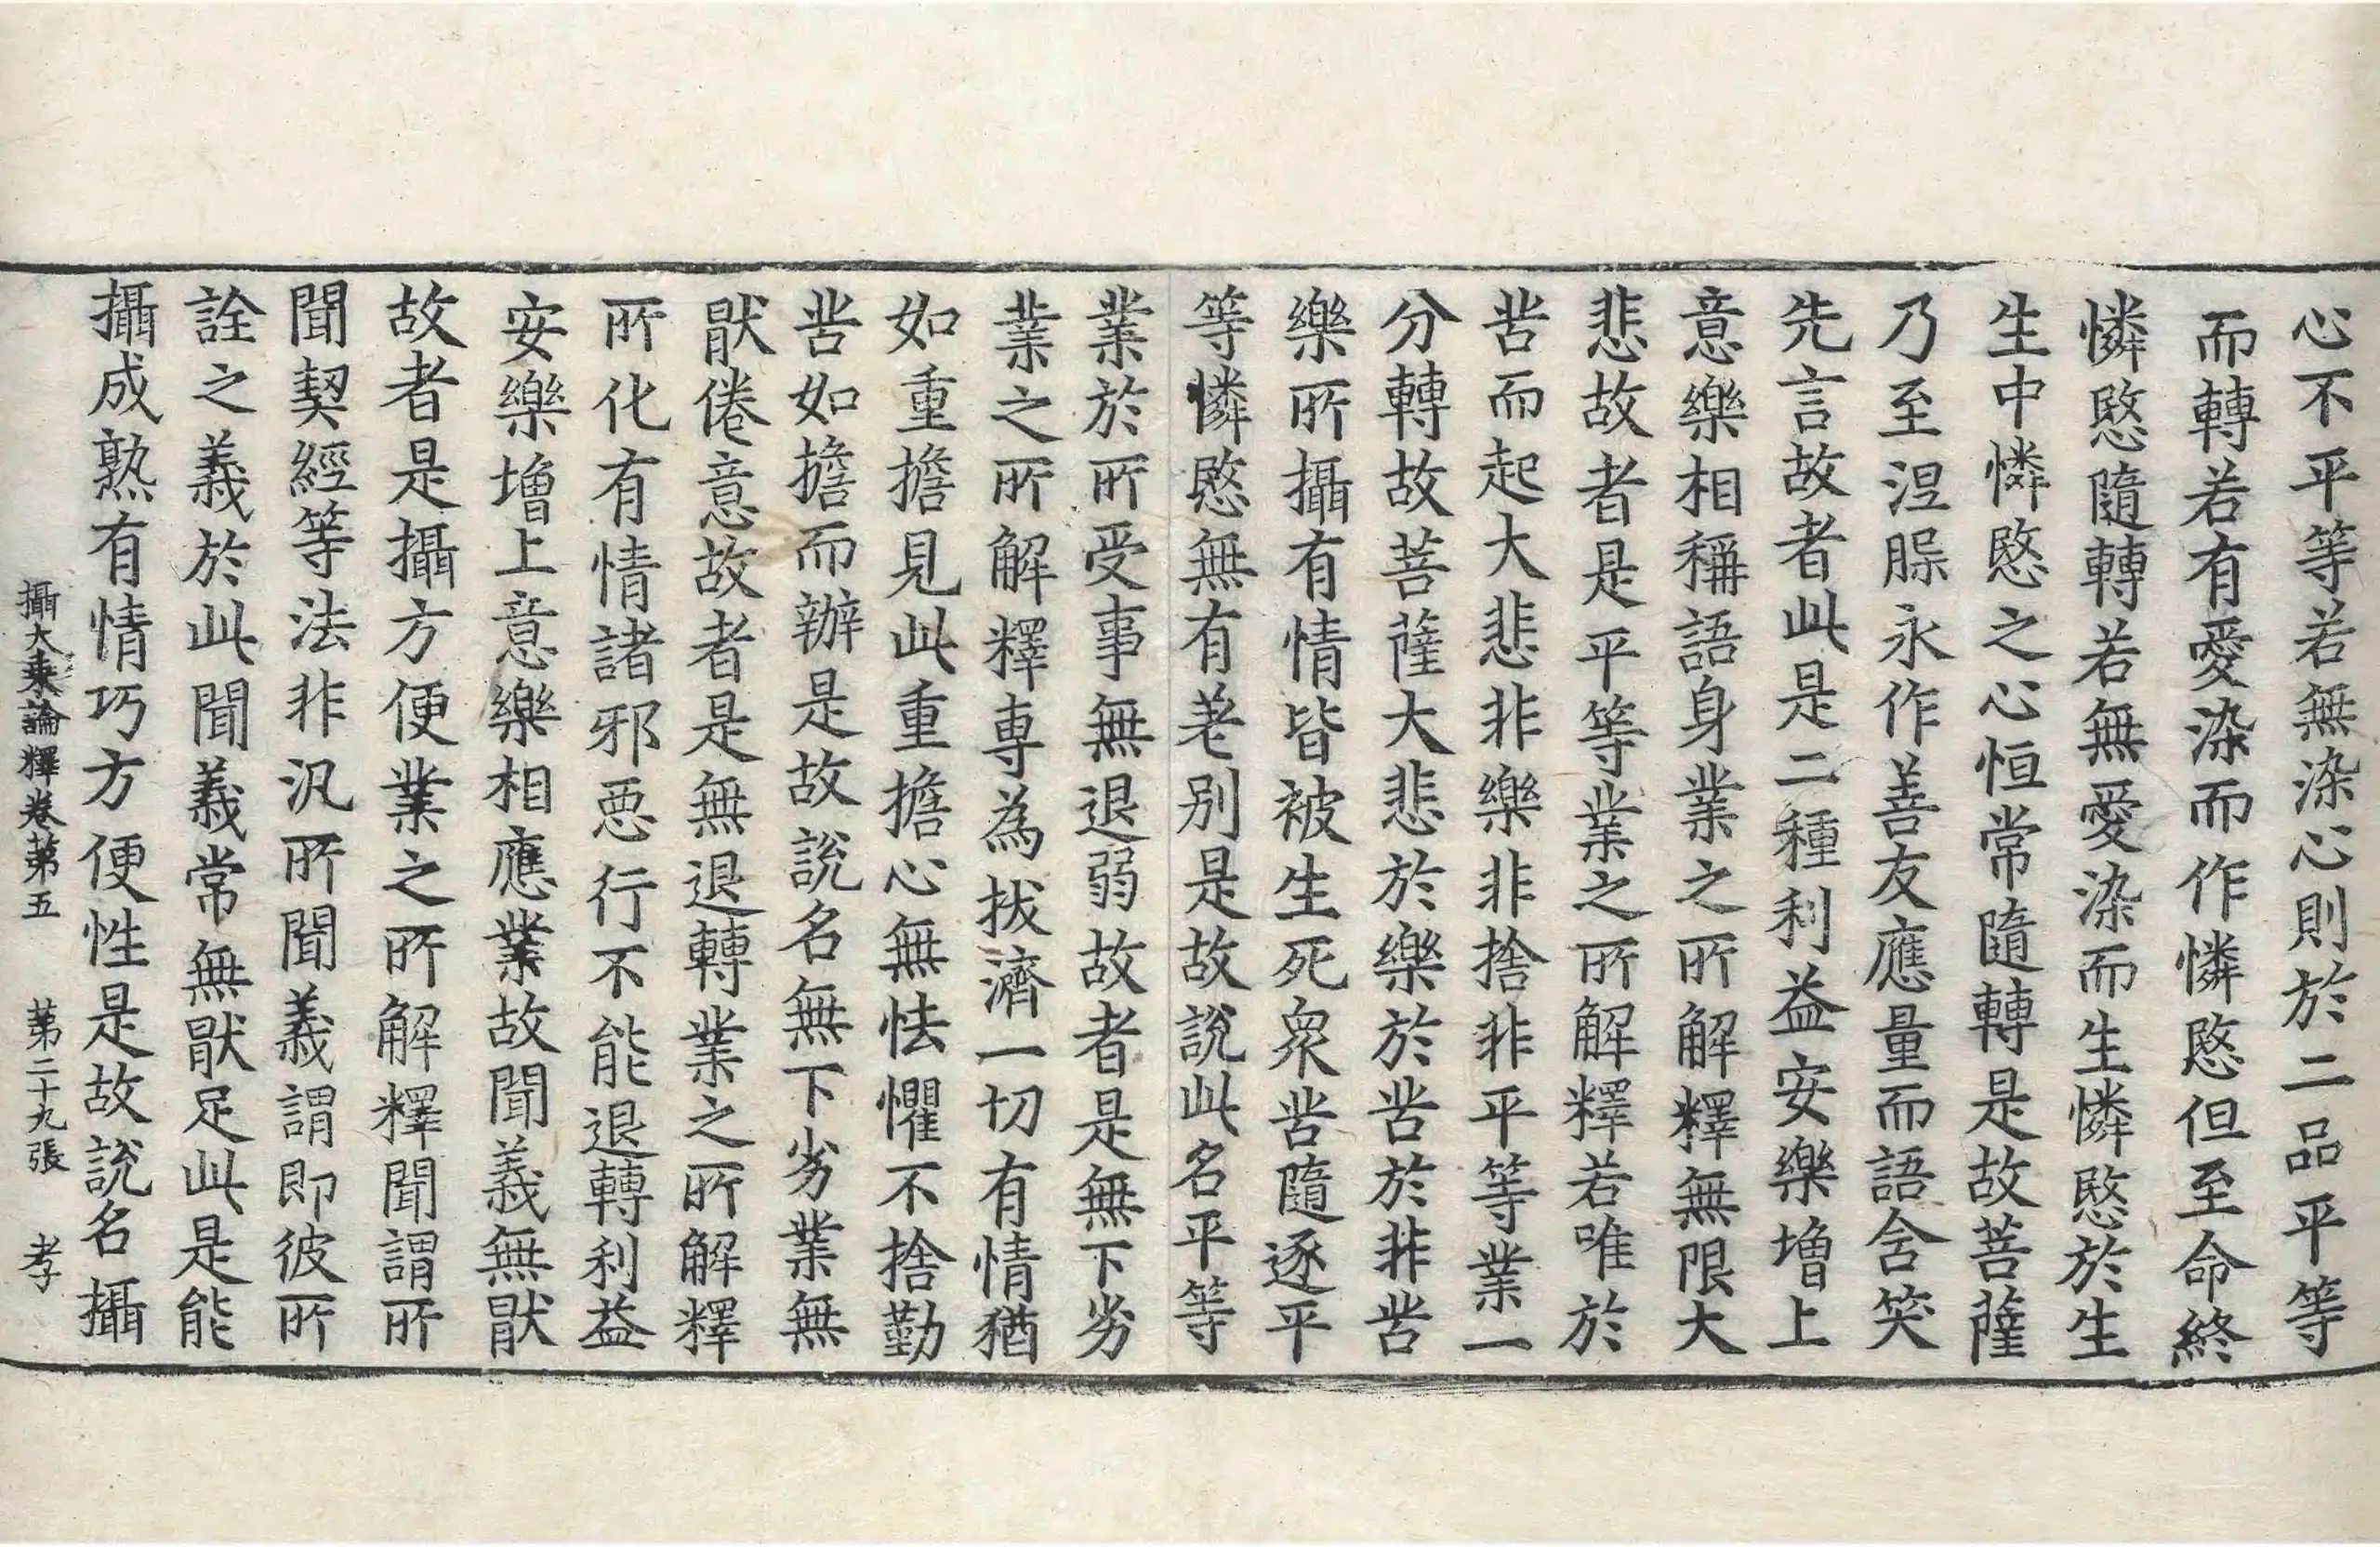 心不平等若無染心則於二品平等
而轉若有愛染而作憐愍但至命終
憐愍隨轉若無愛染而生憐愍於生
生中憐愍之心恒常隨轉是故菩薩
乃至涅槃永作善友應量而語含笑
先言故者此是二種利益安樂增上
意樂相稱語身業之所解釋無限大
悲故者是平等業之所解釋若唯於
苦而起大悲非樂非捨非平等業一
分轉故菩薩大悲於樂於苦於非苦
樂所攝有情皆被生死衆苦隨逐平
等憐愍無有差別是故說此名平等
業於所受事無退弱故者是無下劣
業之所解釋專為拔濟一切有情猶
如重擔見此重擔心無怯懼不捨勤
苦如擔而辦是故說名無下劣業無
猒倦意故者是無退轉業之所解釋
所化有情諸邪惡行不能退轉利益
安樂增上意樂相應業故聞義無猒
故者是攝方便業之所解釋聞謂所
聞契經等法非汎所聞義謂即彼所
詮之義於此聞義常無猒足此是能
攝成熟有情巧方便性是故說名攝
攝大乘論釋卷第五　第二十九張　孝